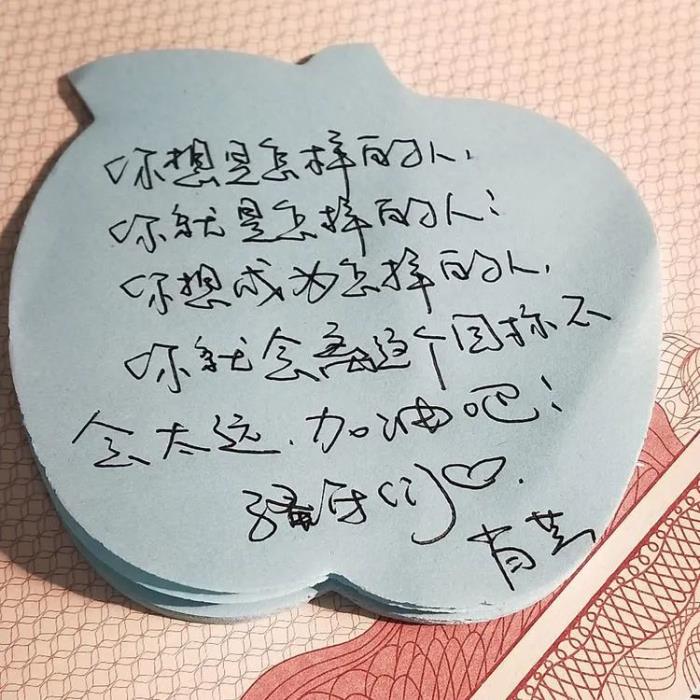 你想是怎样的人,
你就是怎样的人;
你想成为怎样的人,
你就会离这个目标不
会太远.加油吧!
孩们♡.
肖芸